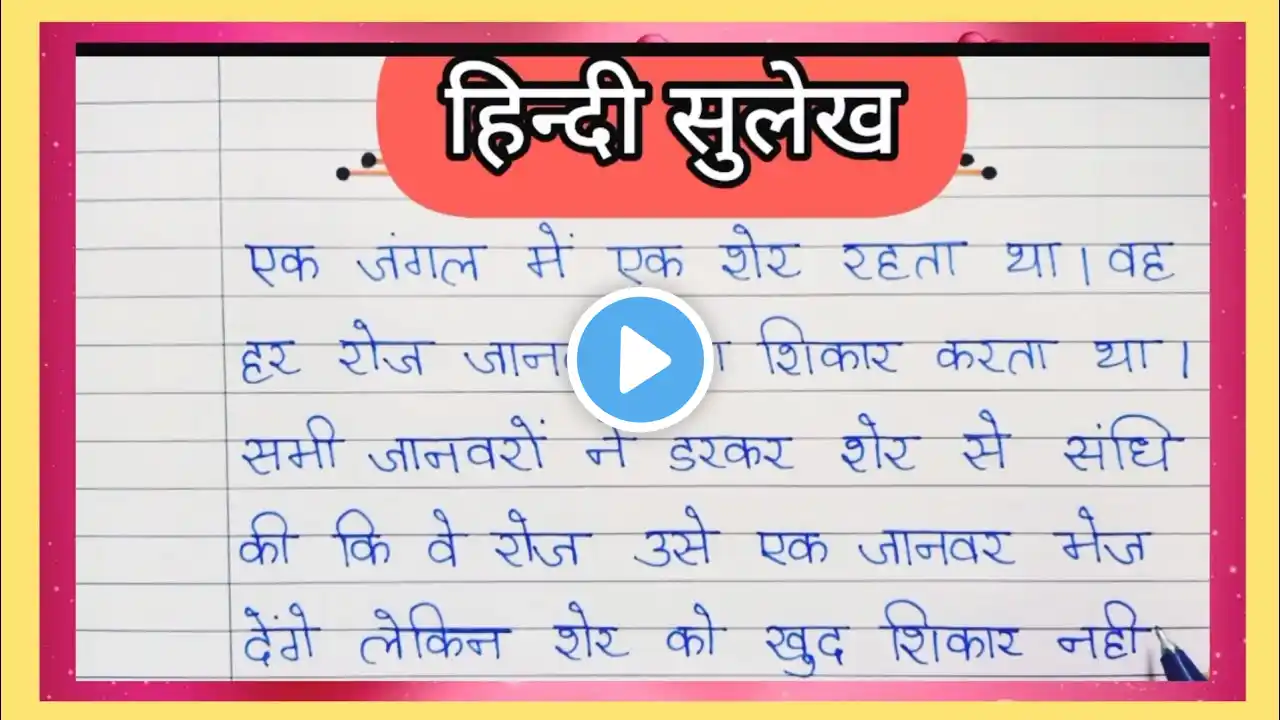 हिन्दी सुलेख
एक जंगल में एक शेर रहता था। वह
हर रोज शिकार करता था।
सभी जानवरों ने डरकर शेर से संधि
की कि वे रोज उसे एक जानवर भेज
देंगे लेकिन शेर को खुद शिकार नही